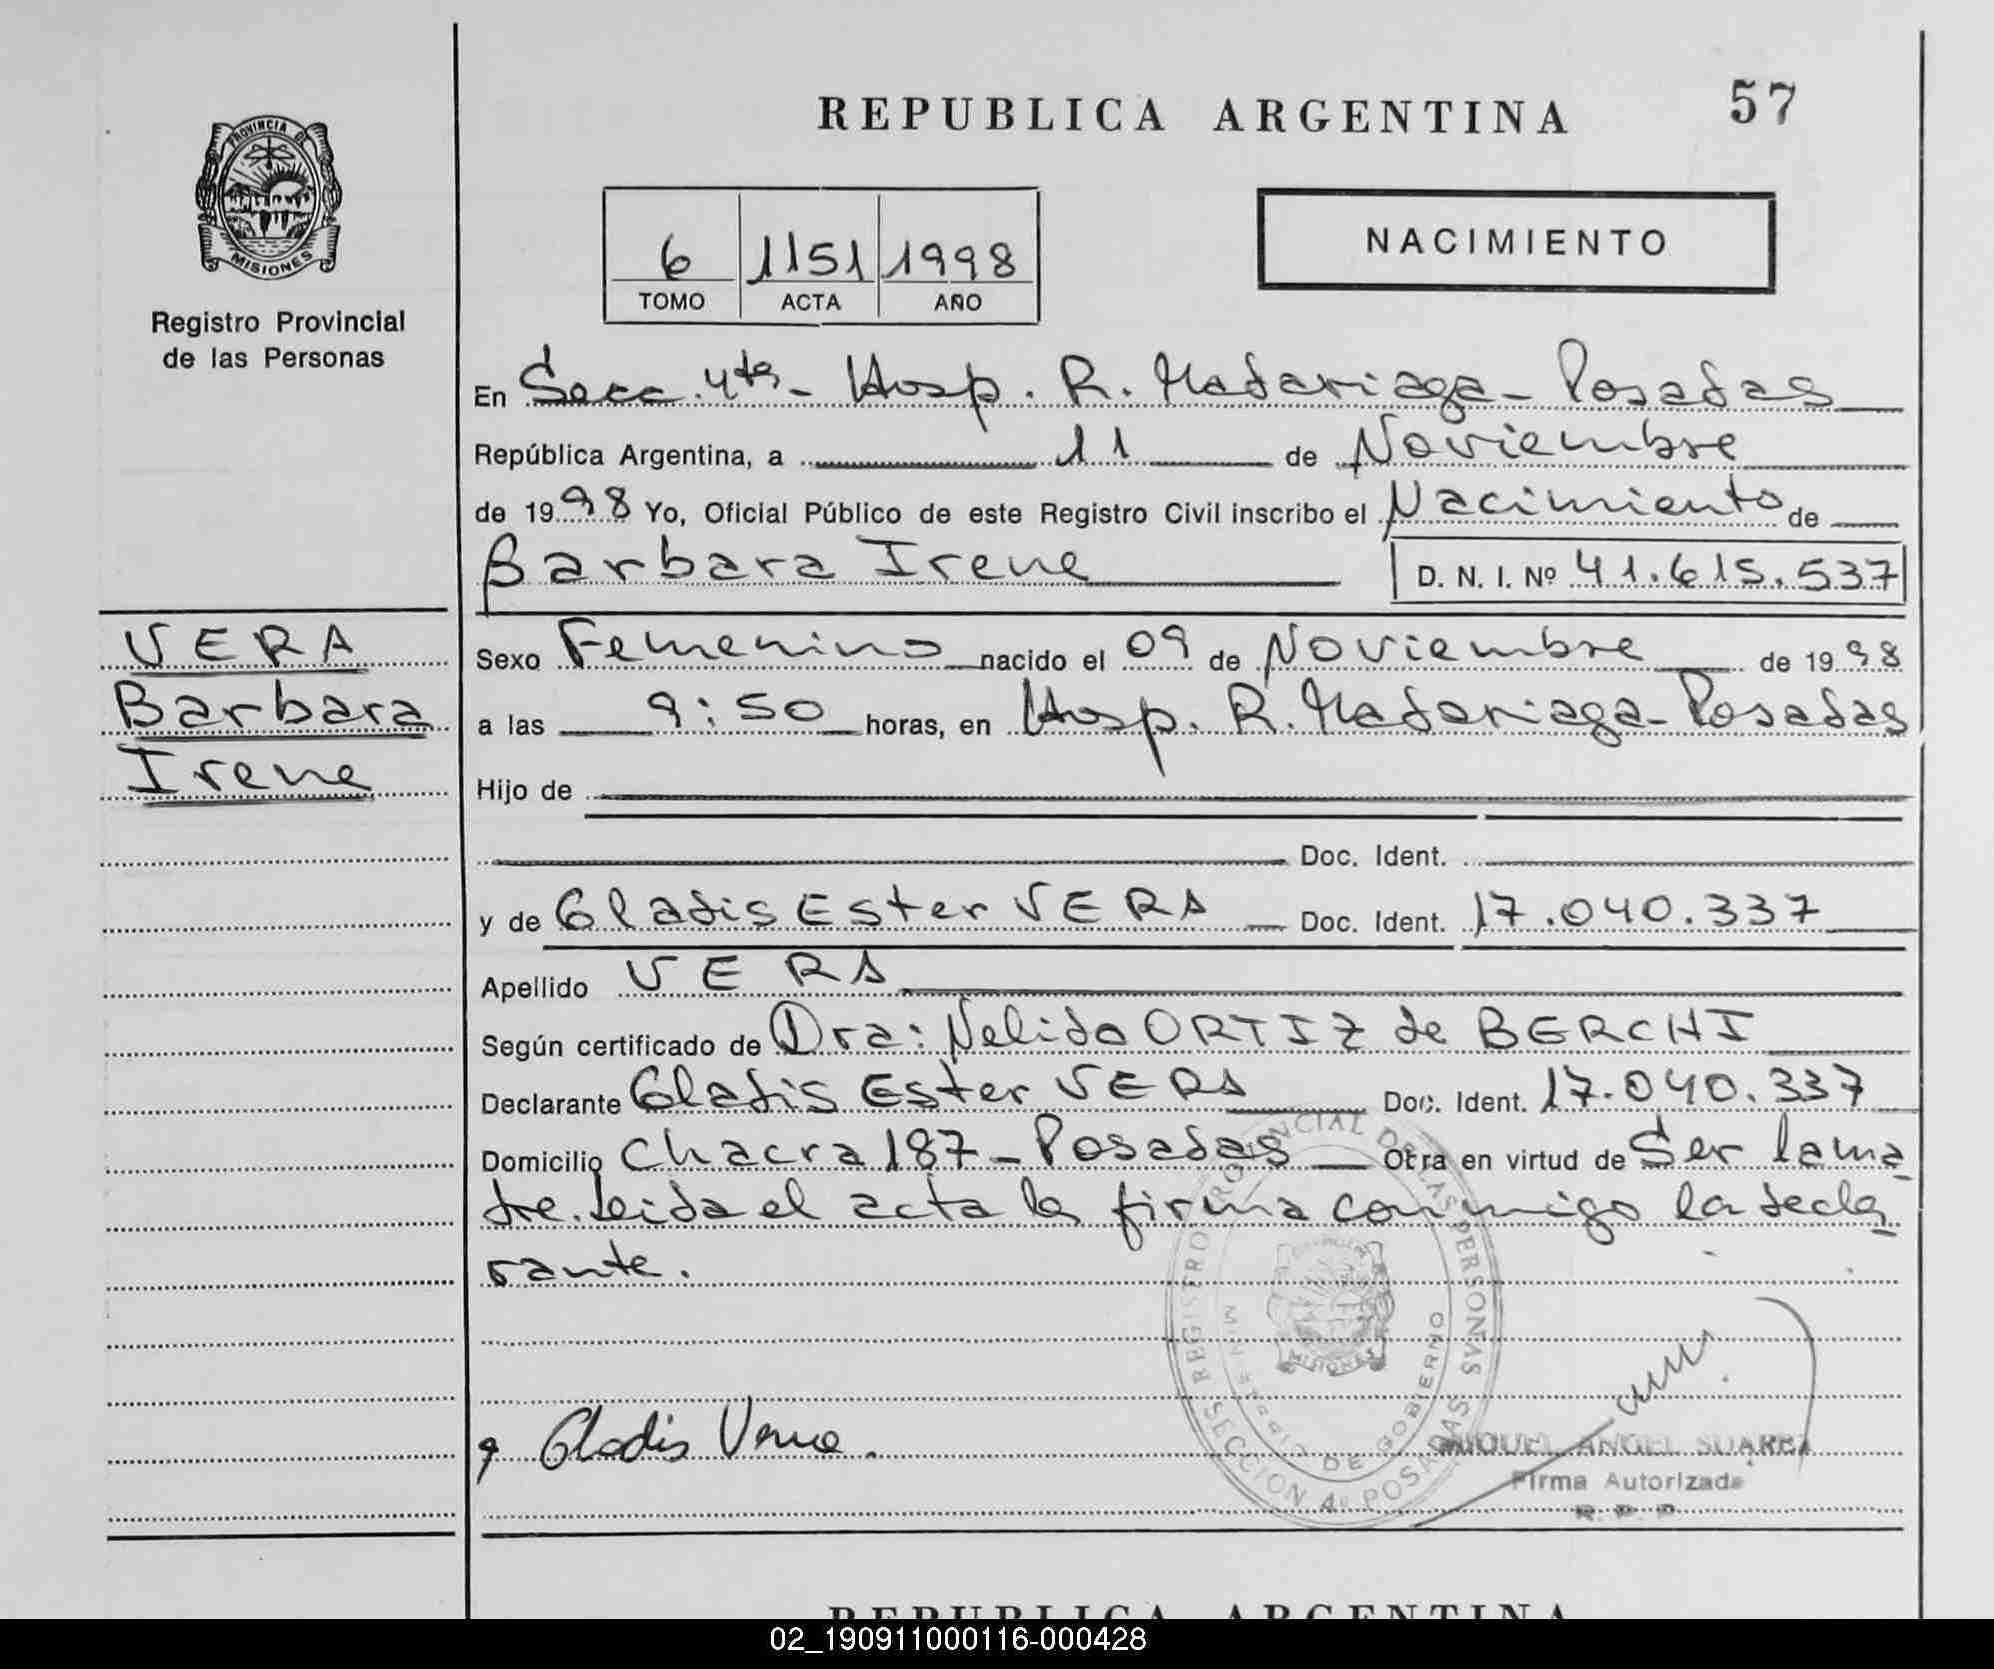 REPUBLICA ARGENTINA
57
PROVINCIA DE
MISIONES
Registro Provincial
de las Personas
6 1151 1998
TOMO ACTA AÑO
NACIMIENTO
En Secc. 4ta - Hosp. R. Madariaga - Posadas
República Argentina, a 11 de Noviembre
de 1998 Yo, Oficial Público de este Registro Civil inscribo el Nacimiento de
Barbara Irene D. N. I. Nº 41.615.537
VERA
Barbara
Irene
Sexo Femenino nacido el 09 de Noviembre de 1998
a las 9:50 horas, en Hosp. R. Madariaga - Posadas
Hijo de
Doc. Ident.
y de Gladis Ester VERA Doc. Ident. 17.040.337
Apellido VERA
Según certificado de Dra: Nelida ORTIZ de BERCHI
Declarante Gladis Ester VERA Doc. Ident. 17.040.337
Domicilio Chacra 187 - Posadas Otra en virtud de Ser la ma
dre. Leida el acta la firma conmigo la decla
rante.
REGISTRO PROVINCIAL DE LAS PERSONAS
MINISTERIO DE GOBIERNO
MISIONES
SECCION 4º POSADAS
Gladis Vera.
MIGUEL ANGEL SUAREZ
Firma Autorizada
R. P. P.
REPUBLICA ARGENTINA
02_190911000116-000428